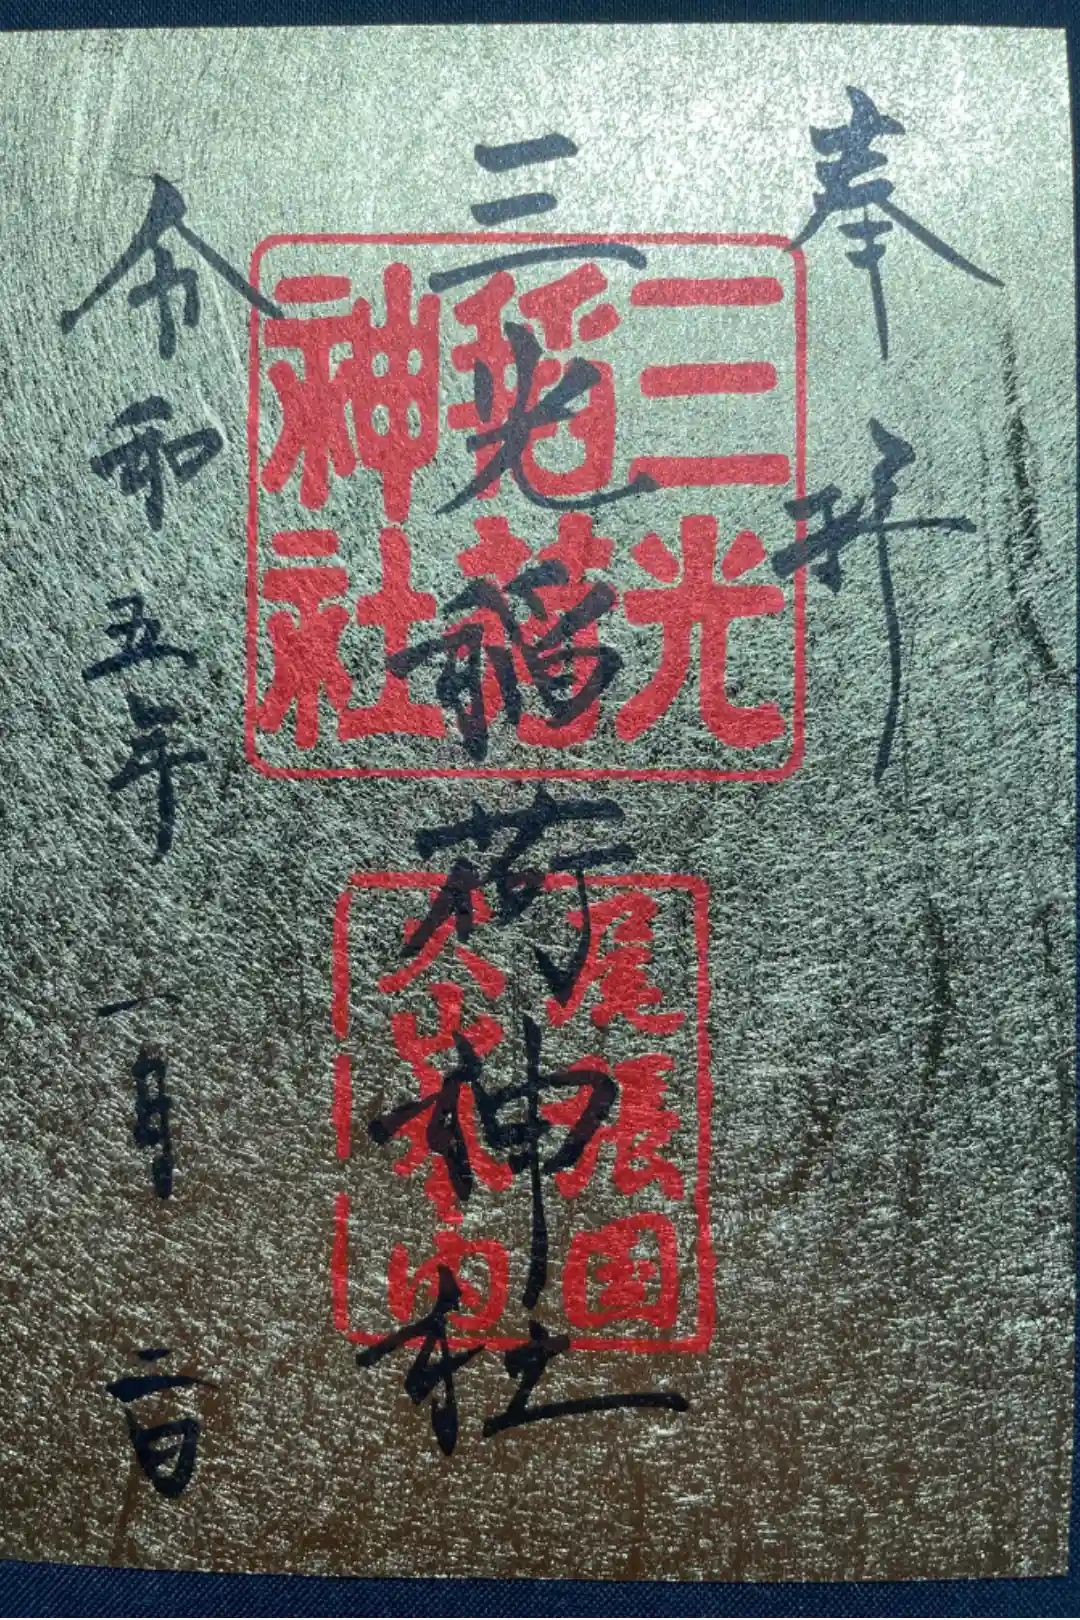 奉拝
三光稲荷神社
三光
稲荷
神社
尾張国
犬山城内
令和五年一月二日